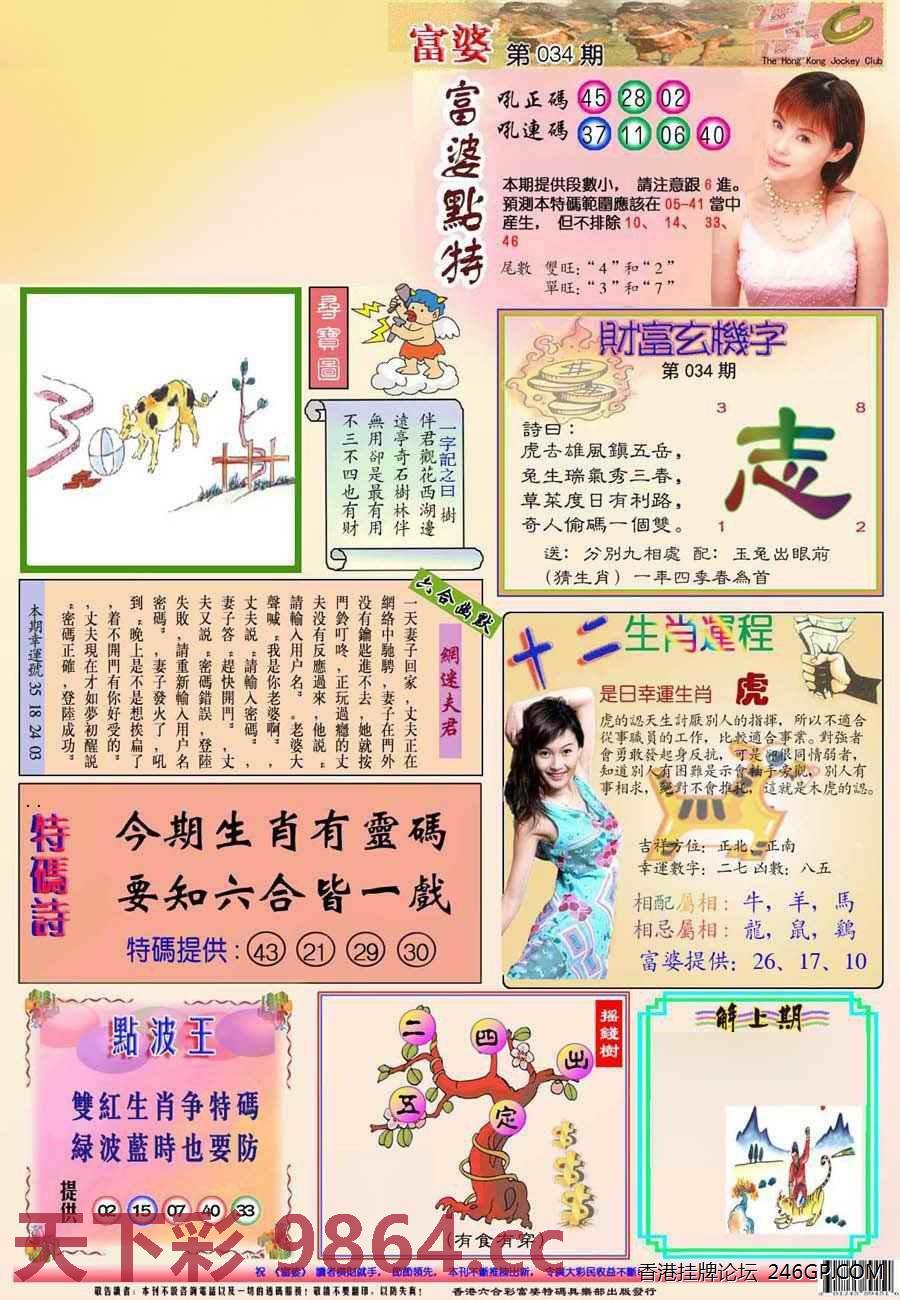 富婆 第 034 期
The Hong Kong Jockey Club
富婆點特
吼正碼 45 28 02
吼連碼 37 11 06 40
本期提供段數小， 請注意跟 6 進。
預測本特碼範圍應該在 05-41 當中
産生， 但不排除 10、 14、 33、
46
尾數 雙旺：“4” 和 “2”
單旺：“3” 和 “7”
尋寶圖
一字記之曰 樹
伴君觀花西湖邊
遠亭奇石樹林伴
無用卻是最有用
不三不四也有財
財富玄機字
第 034 期
3 8
志
1 2
詩曰：
虎去雄風鎮五岳，
兔生瑞氣秀三春，
草菜度日有利路，
奇人偷碼一個雙。
送： 分別九相處 配： 玉兔出眼前
（猜生肖）一年四季春為首
六合幽默
網迷夫君
一天妻子回家，丈夫正在
網絡中馳騁，妻子在門外
没有鑰匙進不去，她就按
門鈴叮咚，正玩過癮的丈
夫没有反應過來，他説“
請輸入用户名”。老婆大
聲喊“我是你老婆啊”，
丈夫説“請輸入密碼”，
妻子答“趕快開門”，丈
夫又説“密碼錯誤，登陸
失敗，請重新輸入用户名
密碼”，妻子發火了，吼
到“晚上是不是想挨扁了
，着不開門有你好受的”
，丈夫現在才如夢初醒説
“密碼正確，登陸成功”
本期幸運號 35 18 24 03
十二生肖運程
是日幸運生肖 虎
虎的認天生討厭別人的指揮， 所以不適合
從事職員的工作，比較適合事業。對強者
會勇敢發起身反抗， 可是卻很同情弱者，
知道別人有困難是示會袖手旁觀， 別人有
事相求， 絕對不會推托， 這就是木虎的認。
吉祥方位： 正北、正南
幸運數字： 二七 凶數： 八五
相配屬相： 牛， 羊， 馬
相忌屬相： 龍， 鼠， 鷄
富婆提供： 26、17、10
特碼詩
今期生肖有靈碼
要知六合皆一戲
特碼提供： 43 21 29 30
點波王
雙紅生肖争特碼
緑波藍時也要防
提供 02 15 07 40 33
摇錢樹
二 四 出
五 定
（有食有穿）
解上期
天下彩 9864.cc
祝 《富婆》 讀者橫財就手， 節節領先， 本刊不斷推陳出新， 令廣大彩民收益不斷
香港挂牌论坛 246GP.COM
敬告讀者：本刊不設咨詢電話以及一切的透碼服務！敬請不要翻印，以防失真！
香港六合彩富婆特碼俱樂部出版發行